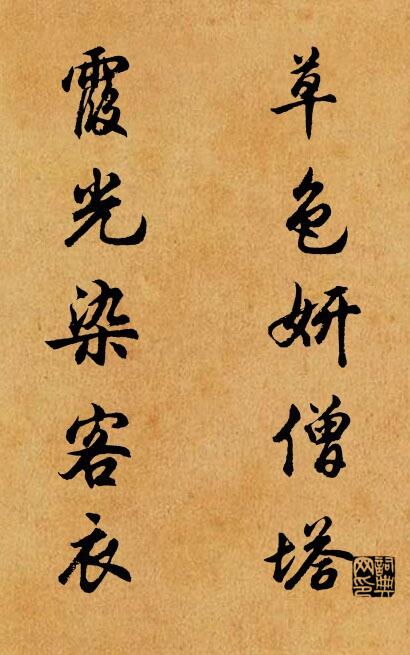 草色妍僧塔
霞光染客衣
詞典网印